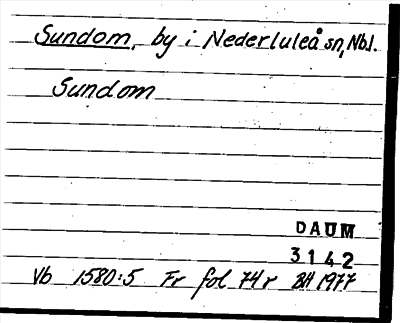 Sundom, by i Nederluleå sn, Nbl.
Sundom
DAUM
3142
Vb 1580:5 Fr fol 74r BH 1977